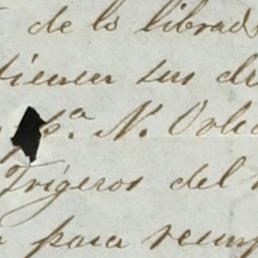 de lo librado
tienen sus de
p.ª N. Orlea
Trigeros del
para recump